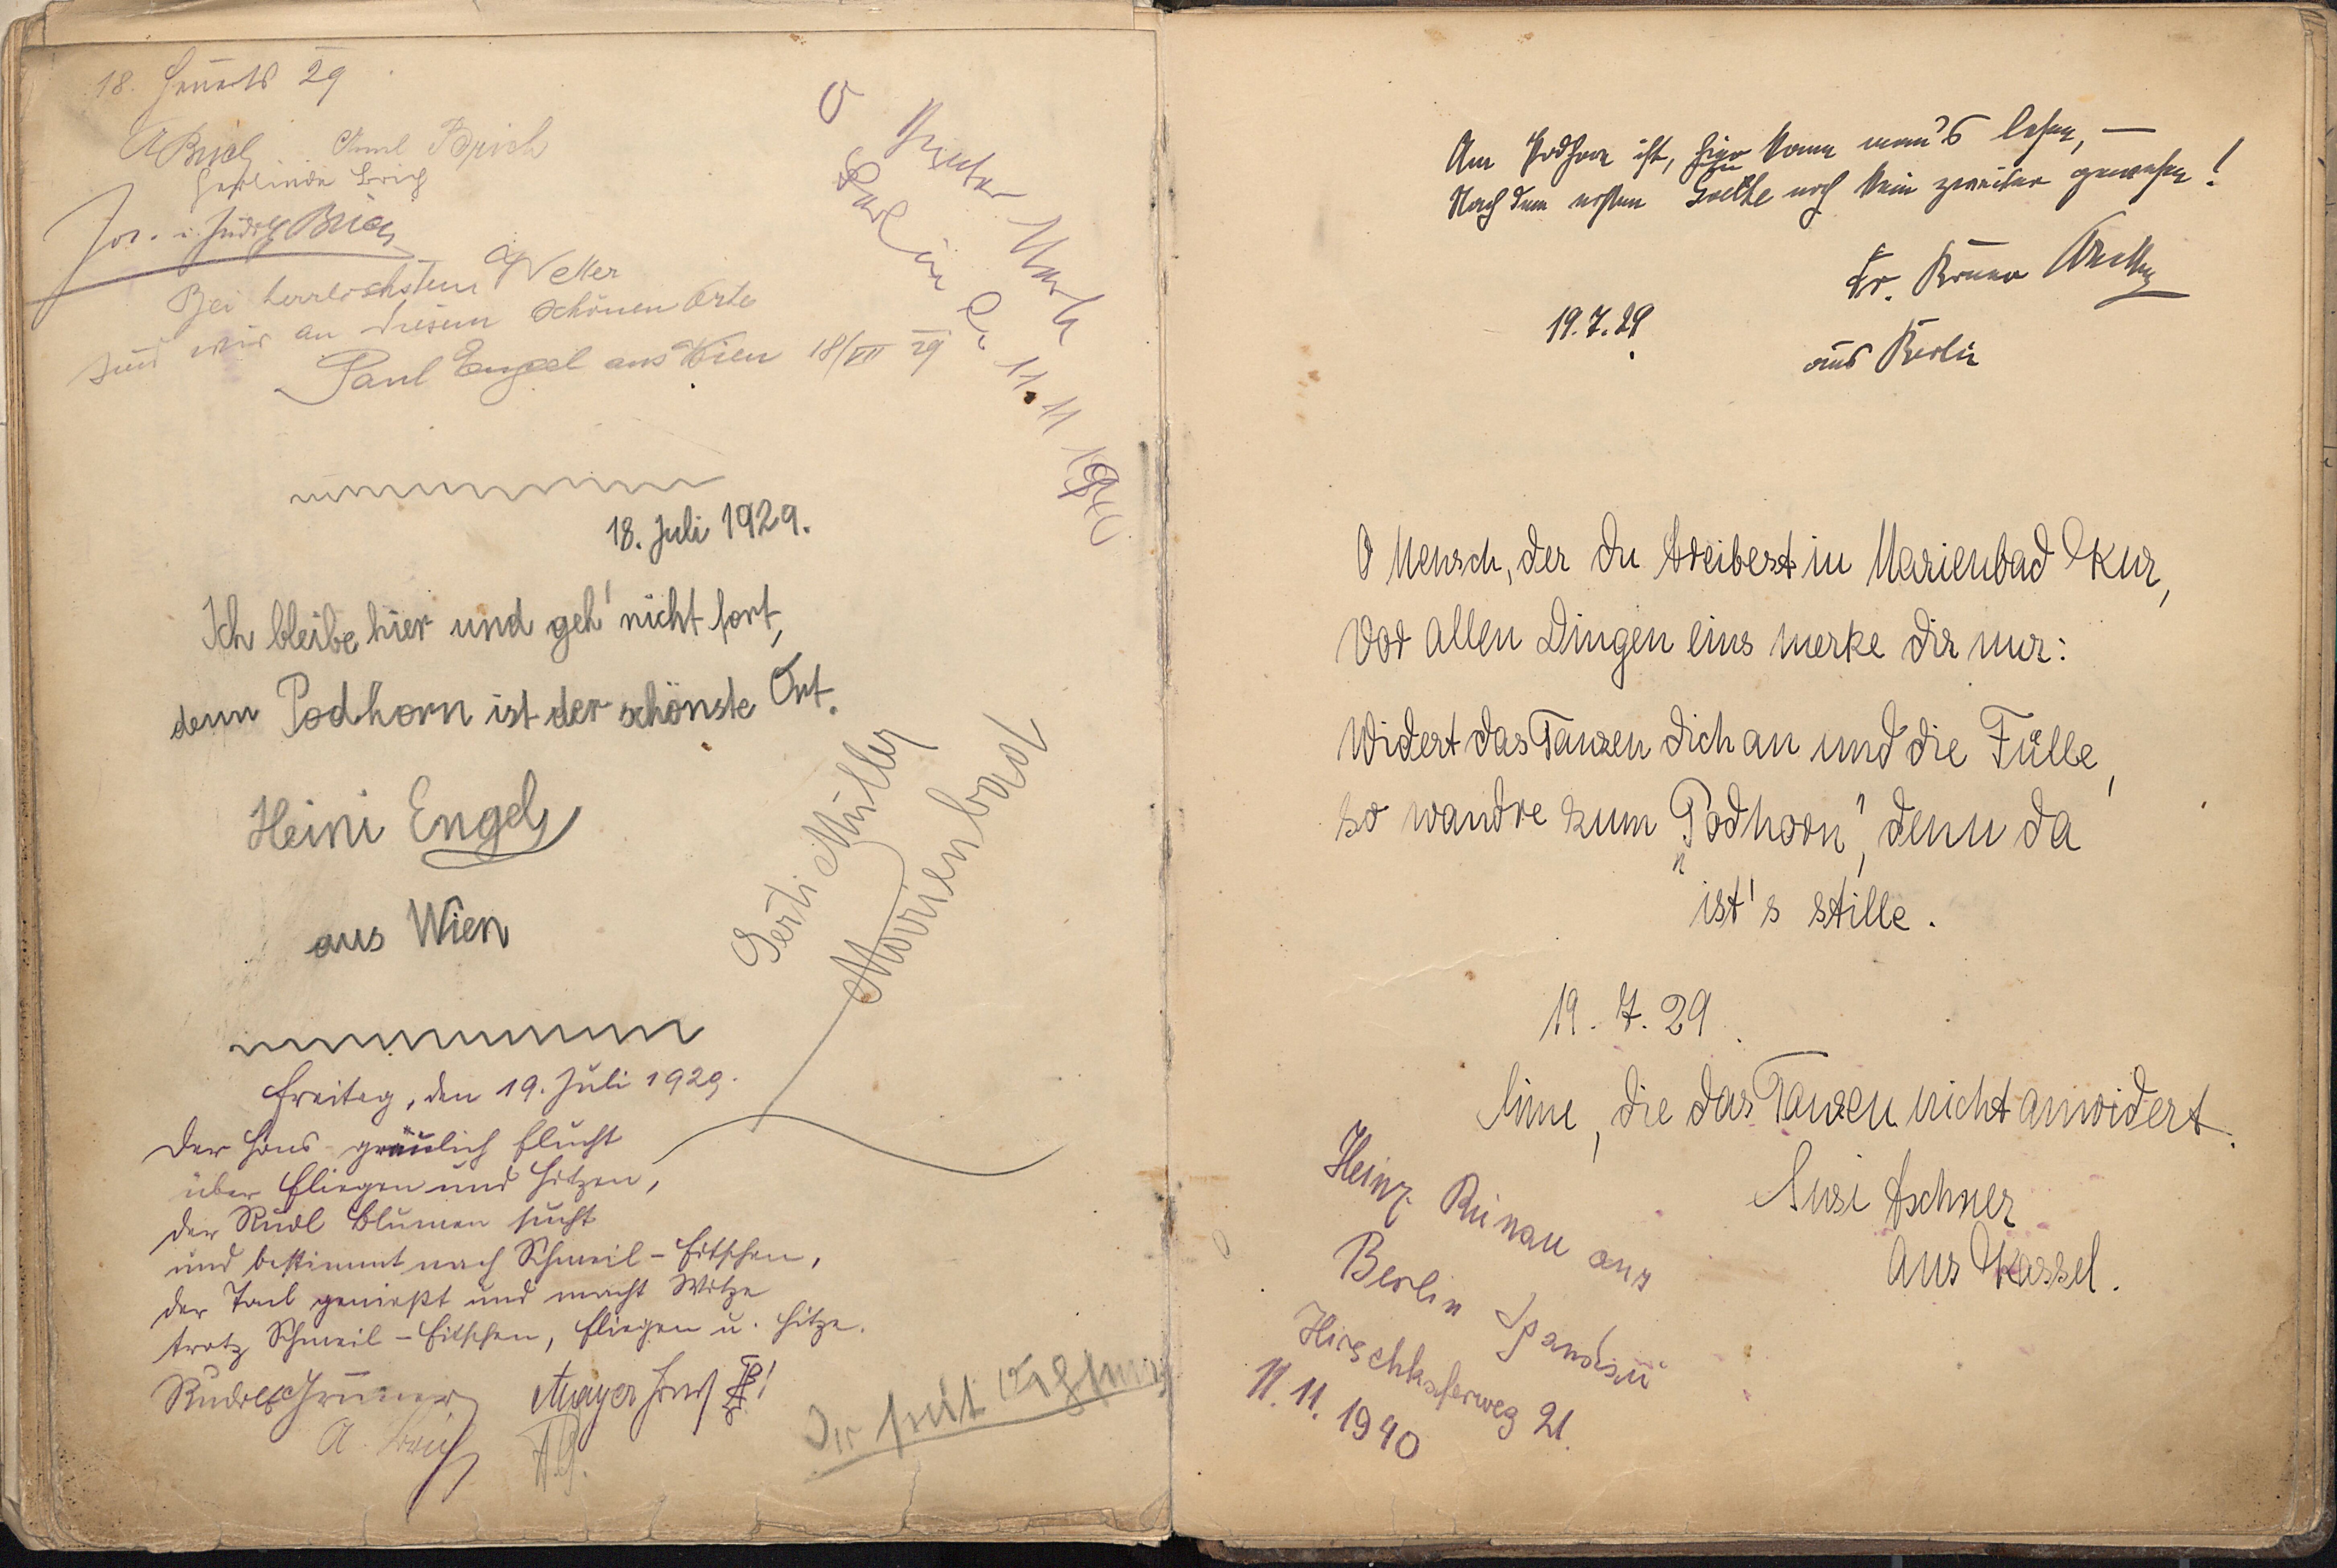 18. Heuerts 29
Brich
Gerlinde Brich
Jos. u. Judith Brich
Bei herrlichstem Wetter
sind wir an diesem schönen Orte
Paul Engel aus Wien 18/VII 29
Günter
Berlin 11. 11 1940
18. Juli 1929.
Ich bleibe hier und geh' nicht fort,
denn Podhorn ist der schönste Ort.
Heini Engel
aus Wien
Gerti Müller
Marienbad
Freitag, den 19. Juli 1929.
Der Hans gräulich flucht
über Fliegen und Hitzen,
der Rudl Blumen sucht
und bestimmt nach Schmeil-Fitschen,
der Toul genießt und macht Witze
trotz Schmeil-Fitschen, Fliegen u. Hitze.
Rudolf Grüner Mayer Hans
A. Brich
Am Podhorn ist, hier kann man's lesen, —
Nach dem ersten Goethe noch kein zweiter gewesen!
Dr. Bruno
19.7.29.
aus Berlin
O Mensch, der du treibest in Marienbad Kur,
Vor allen Dingen eins merke dir nur:
Widert das Tanzen dich an und die Fülle,
so wandre zum „Podhorn", denn da
ist's stille.
19. 7. 29.
Eine, die das Tanzen nicht anwidert.
Susi Aschner
aus Kassel.
Heinz Rünau aus
Berlin Spandau
21.
11. 11. 1940